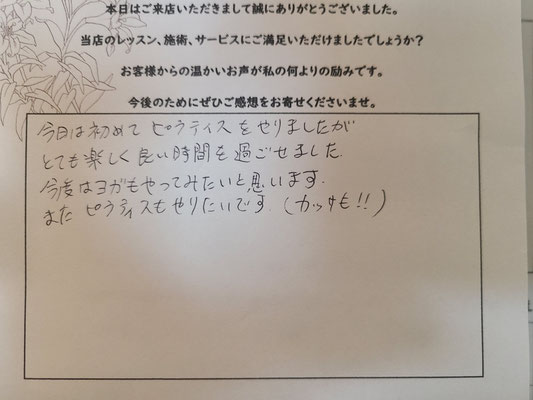 本日はご来店いただきまして誠にありがとうございました。
当店のレッスン、施術、サービスにご満足いただけましたでしょうか?
お客様からの温かいお声が私の何よりの励みです。
今後のためにぜひご感想をお寄せくださいませ。
今日は初めて ピラティスをやりましたが
とても楽しく良い時間を過ごせました
今度はヨガもやってみたいと思います.
また ピラティスもやりたいです.(カッサも!!)